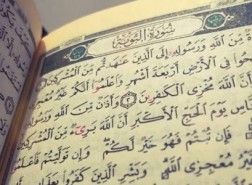 سُورَةُ التَّوْبَةِ
مِّنَ اللَّهِ وَرَسُولِهِ إِلَى الَّذِينَ عَاهَدتُّم مِّنَ الْمُشْرِكِينَ
فِي الْأَرْضِ أَرْبَعَةَ أَشْهُرٍ وَاعْلَمُوا أَنَّكُمْ غَيْرُ مُعْجِزِي
اللَّهَ مُخْزِي الْكَٰفِرِينَ ٢ وَأَذَٰنٌ مِّنَ اللَّهِ وَرَسُولِهِ
يَوْمَ الْحَجِّ الْأَكْبَرِ أَنَّ اللَّهَ بَرِيءٌ مِّنَ الْمُشْرِكِينَ
فَإِن تُبْتُمْ فَهُوَ خَيْرٌ لَّكُمْ وَإِن تَوَلَّيْتُمْ فَاعْلَمُوا
مُعْجِزِي اللَّهِ وَبَشِّرِ الَّذِينَ كَفَرُوا